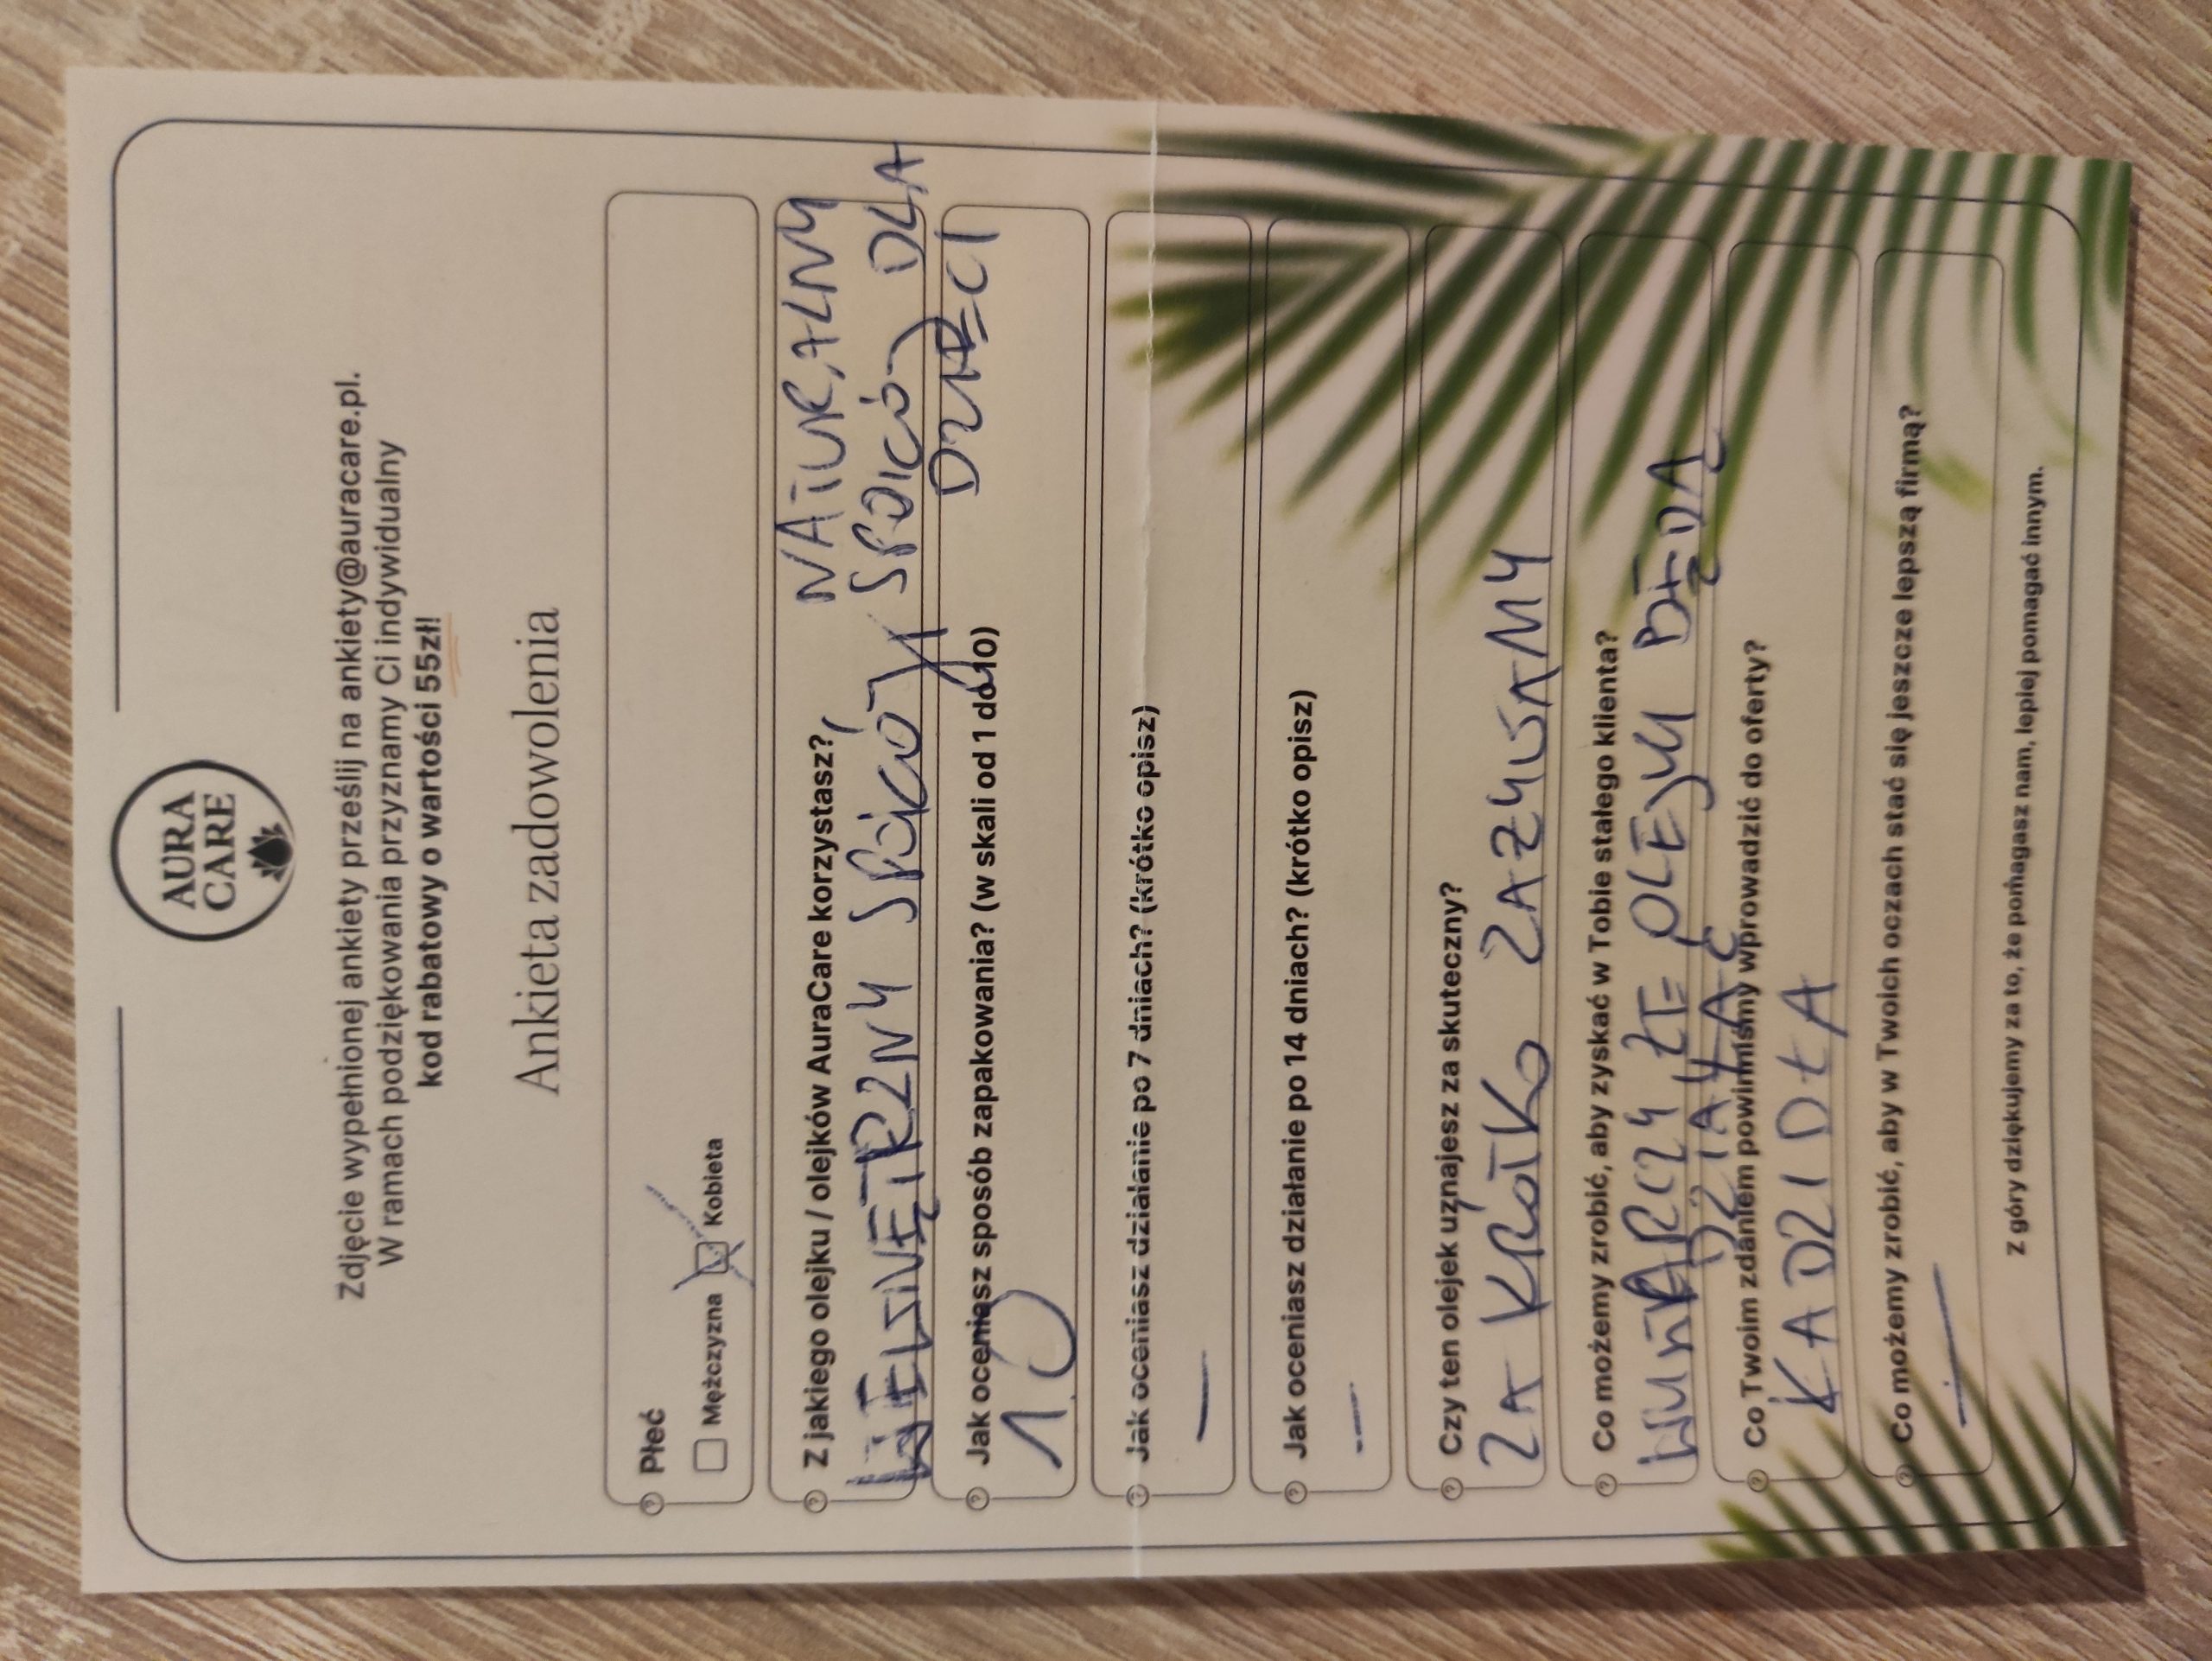 AURA
CARE
Zdjęcie wypełnionej ankiety prześlij na ankiety@auracare.pl.
W ramach podziękowania przyznamy Ci indywidualny
kod rabatowy o wartości 55zł!
Ankieta zadowolenia
Płeć
Mężczyzna Kobieta
Z jakiego olejku / olejków AuraCare korzystasz?
NATURALNY
WEWNĘTRZNY SPOKÓJ, SPOKÓJ DLA
DZIECI
Jak oceniasz sposób zapakowania? (w skali od 1 do 10)
10
Jak oceniasz działanie po 7 dniach? (krótko opisz)
—
Jak oceniasz działanie po 14 dniach? (krótko opisz)
—
Czy ten olejek uznajesz za skuteczny?
ZA KRÓTKO ZAŻYWAMY
Co możemy zrobić, aby zyskać w Tobie stałego klienta?
WYSTARCZY ŻE OLEJKI BĘDĄ
DZIAŁAĆ
Co Twoim zdaniem powinniśmy wprowadzić do oferty?
KADZIDŁA
Co możemy zrobić, aby w Twoich oczach stać się jeszcze lepszą firmą?
—
Z góry dziękujemy za to, że pomagasz nam, lepiej pomagać innym.